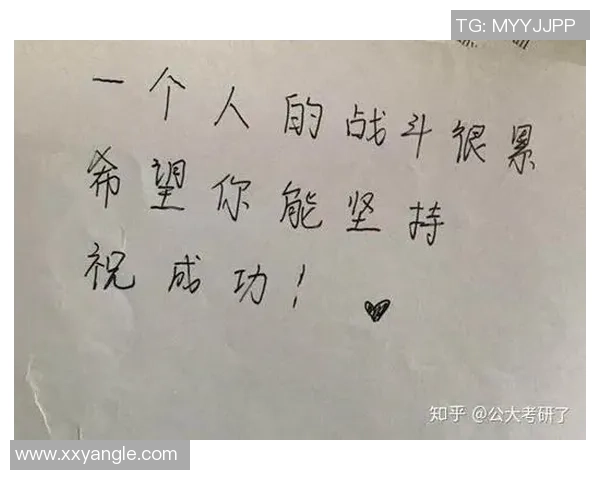 TG: MYYJJPP
一个人的战斗很累
希望你能坚持
祝成功!
知乎 @公大考研了
www.xxyangle.com